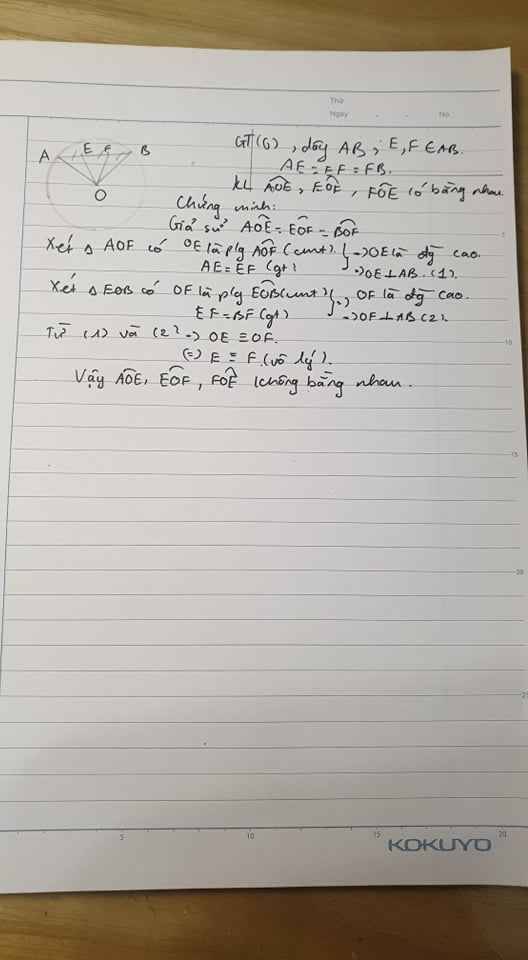 Thứ
Ngày . . No.
A E F B
O
GT (O), dây AB; E, F ∈ AB.
AE = EF = FB.
KL AÔE, EÔF, FÔE có bằng nhau
Chứng minh:
Giả sử AÔE = EÔF = BÔF
Xét Δ AOF có OE là p/g AÔF (cmt) } => OE là đg cao.
AE = EF (gt) => OE ⊥ AB. (1).
Xét Δ EOB có OF là p/g EÔB (cmt) } => OF là đg cao.
EF = BF (gt) => OF ⊥ AB (2).
Từ (1) và (2) => OE ≡ OF.
(=) E ≡ F. (vô lý).
Vậy AÔE, EÔF, FÔE không bằng nhau.
5
10
15
20
25
5 10 15 20
KOKUYO